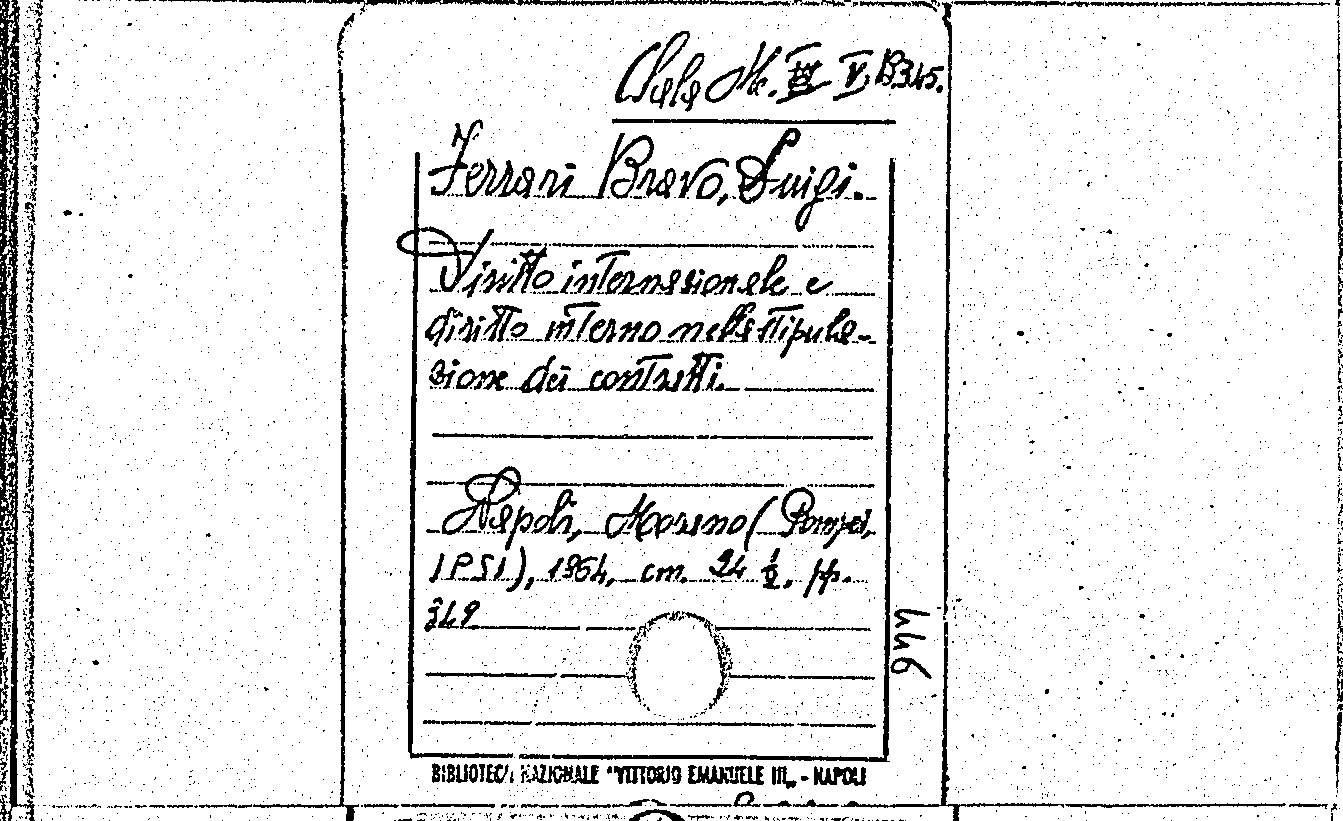 Sala Mc. III V, B345.
Ferrari Bravo, Luigi.
Diritto internazionale e
diritto interno nella stipula-
zione dei contratti.
Napoli, Morano (Pompei,
IPSI), 1964, cm. 24 ½, pp.
349
446
BIBLIOTECA NAZIONALE "VITTORIO EMANUELE III„ - NAPOLI